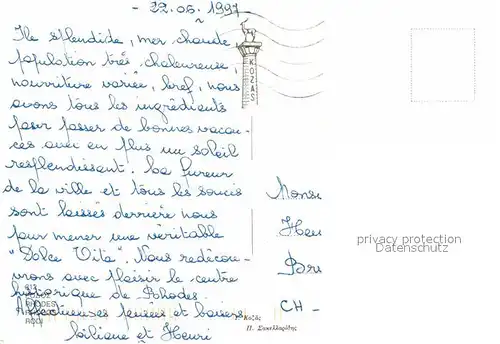 - 22.06.1997
Ile splendide, mer chaude
population très chaleureuse,
nourriture variée, bref, nous
avons tous les ingrédients
pour passer de bonnes vacan-
ces avec en plus un soleil
resplendissant. La fureur
de la ville et tous les soucis
sont laissés derrière nous
pour mener une véritable
"Dolce Vita". Nous redécou-
vrons avec plaisir le centre
historique de Rhodes.
Affectueuses pensées et baisers
Liliane et Henri
ΚΟΖΑΣ
613
RHODES
RODI
Κοζᾶς
Π. Σακελλαρίδης
Monsi
Hen
Bru
CH -
privacy protection
Datenschutz